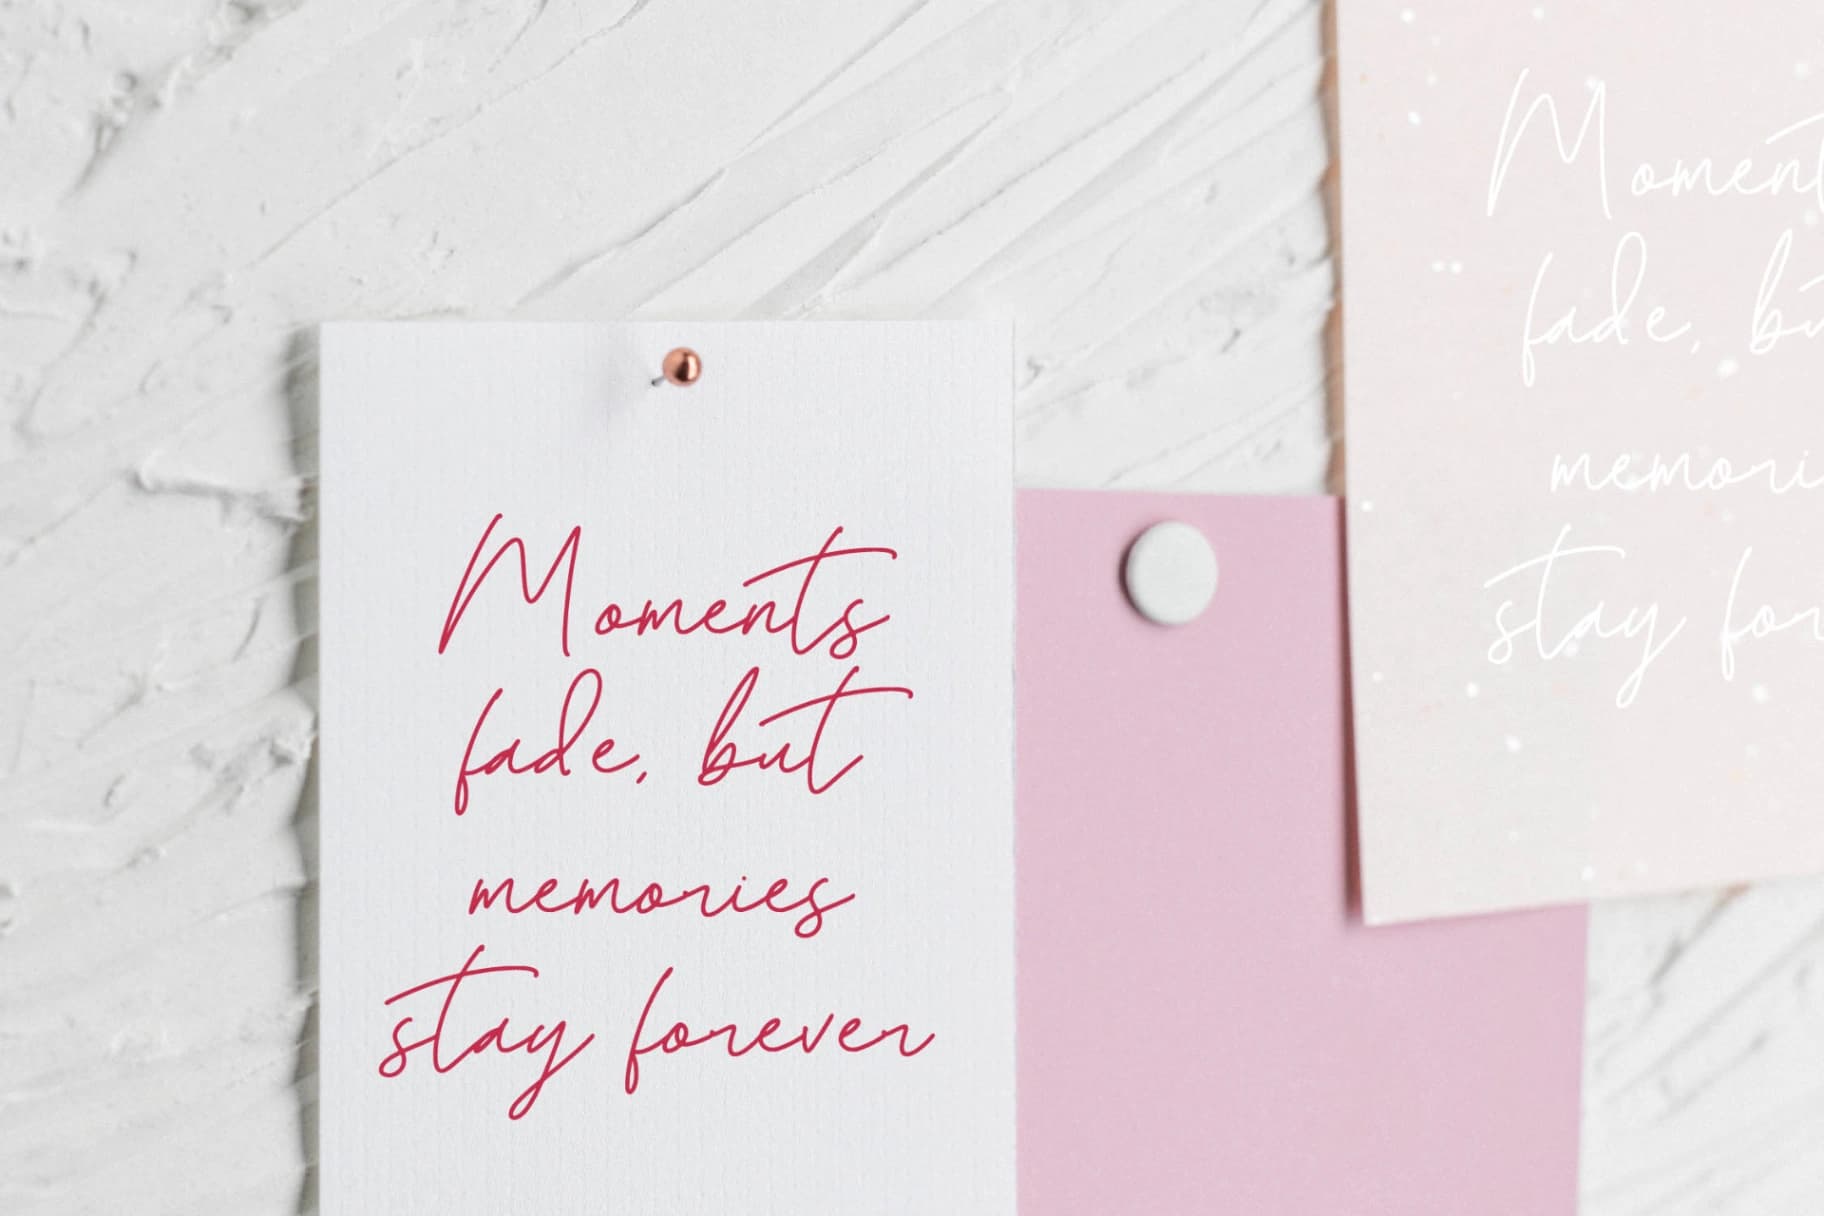 Moments
fade, but
memories
stay forever
Moment
fade, bu
memori
stay for